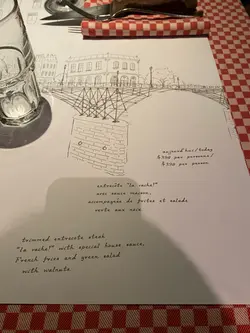 aujourd'hui/today
$350 par personne/
$350 per person
entrecôte "la vache!"
avec sauce maison,
accompagnée de frites et salade
verte aux noix
trimmed entrecote steak
"la vache!" with special house sauce,
French fries and green salad
with walnuts